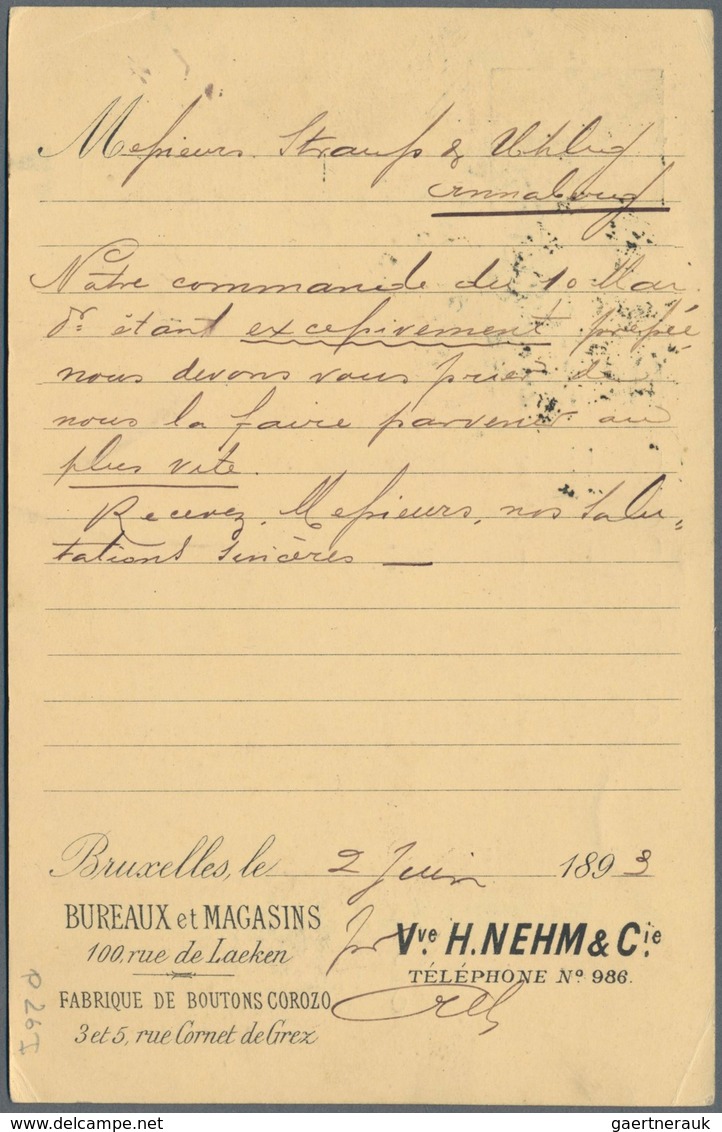 Messieurs Strauss & Uhlig
Annaberg
Notre commande du 10 Mai
dr. étant excessivement pressée
nous devons vous prier de
nous la faire parvenir au
plus vite.
Recevez, Messieurs, nos salu-
tations sincères —
Bruxelles, le 2 Juin 1893
BUREAUX et MAGASINS
100, rue de Laeken
FABRIQUE DE BOUTONS COROZO
3 et 5, rue Cornet de Grez
pr Vve H. NEHM & Cie
TÉLÉPHONE No 986.
P 26 I
gaertnerauk